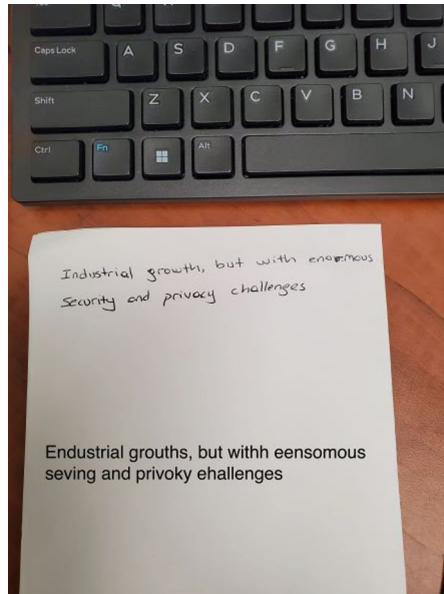 Q
Caps Lock A S D F G H J
Shift Z X C V B N
Ctrl Fn Alt
Industrial growth, but with enormous
Security and privacy challenges
Endustrial grouths, but withh eensomous
seving and privoky ehallenges